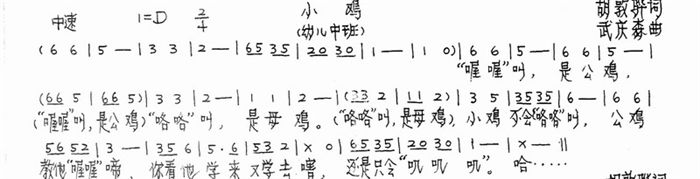 中速 1=D 2/4 小鸡 胡敦骅词
(幼儿中班) 武庆森曲
(6 6 | 5 — | 3 3 | 2 — | 65 35 | 20 30 | 1 — | 1 0) | 6 6 | 5 — | 6 6 | 5 — |
“喔喔”叫, 是公鸡,
(66 5 | 66 5) | 3 3 | 2 — | 1 1 | 2 — | (33 2 | 11 2) | 3 5 | 35 35 | 6 — | 6 6 |
(“喔喔”叫,是公鸡)“咯咯”叫, 是母鸡。(“咯咯”叫,是母鸡)小鸡不会“咯咯”叫, 公鸡
56 52 | 3 — | 35 6 | 5·6 | 53 2 | X 0 | 65 35 | 20 30 | 1 — | X — ‖
教他“喔喔”啼, 你看他学来又学去嘻, 还是只会“叽叽叽”。哈……